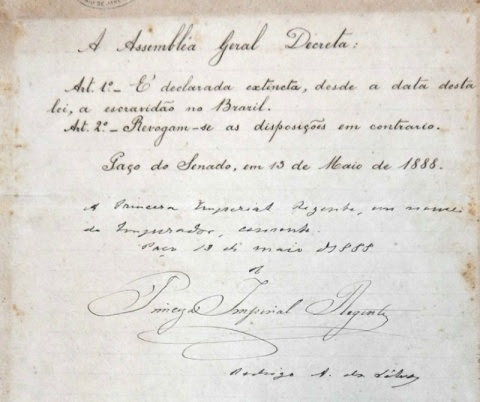 A Assemblia Geral Decreta:
Art. 1º_ E' declarada extincta, desde a data desta
lei, a escravidão no Brazil.
Art. 2º_ Revogam-se as disposições em contrario.
Paço do Senado, em 13 de Maio de 1888.
A Princesa Imperial Regente, em nome
do Imperador, consente.
Paço 13 de maio de 1888
Princeza Imperial Regente
Rodrigo A. da Silva